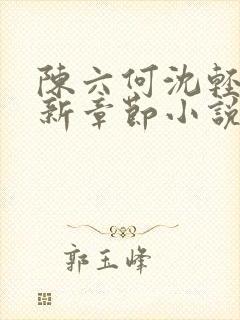 陳六何沈輕
新章節小說
郭玉峰